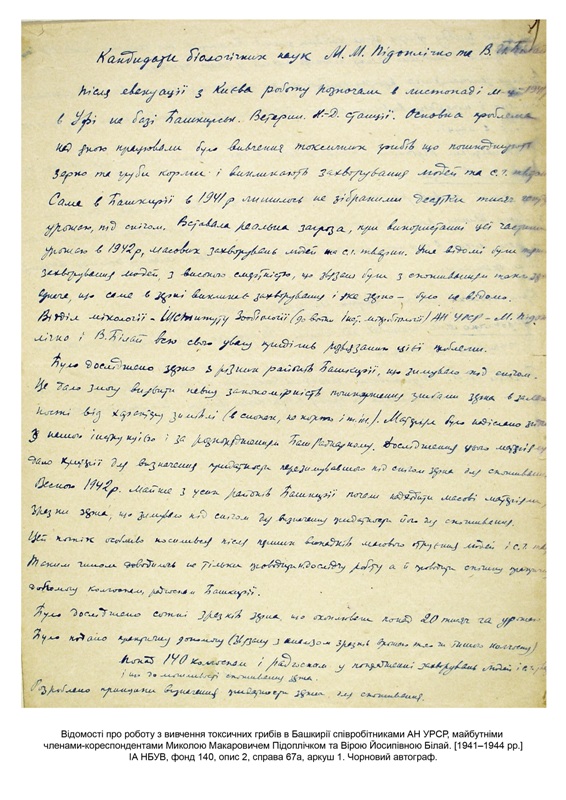 Кандидати біологічних наук М. М. Підоплічко та В.
Після евакуації з Києва роботу розпочали в листопаді
в Уфі на базі Башкирськ. Ветерин. Н.-Д. станції. Основна проблема
над якою працювали було вивчення токсичних грибів що пошкоджують
зерно та грубі корми і викликають захворування людей та с.г.
Саме в Башкирії в 1941 р лишилось не зібраними десятки тисяч
урожаю, під снігом. Вставала реальна загроза, при використанні цієї частини
урожаю в 1942 р, масових захворувань людей та с.г. тварин. Уже відомі були
захворування людей з високою смертністю, що звязані були з споживанням
однак, що саме в зерні викликає захворування і яке зерно – було не відомо.
Відділ мікології – Институту Зообіології АН УРСР – М.
лічко і В. Білай всю свою увагу приділив розвязанню цієї проблеми.
Було досліджено зерно з різних районів Башкирії, що зимувало під снігом.
Це дало змогу виявити певну закономірність пошкодження грибами зерна в
ності від характеру зимівлі
З нашою інструкцією і за розпорядженням
дано критерії для визначення придатности перезимувавшого під снігом зерна для споживання
Весною 1942 р. майже з усіх районів Башкирії почали
зразки зерна, що зимувало під снігом для визначення придатности його для споживання.
Цей потік особливо посилився після перших випадків масового отруєння людей і с.г.
Таким чином доводилось не тільки проводити дослідну роботу а й проводити спішну
допомогу колгоспам, радгоспам Башкирії.
Було досліджено сотні зразків зерна, що охоплювали понад 20 тисяч га урожаю
Було подано практичну допомогу
понад 140 колгоспам і радгоспам у попередженні захворувань людей і с.г.
і що до можливості споживання зерна.
Розроблено принципи визначення придатности зерна для споживання.
Відомості про роботу з вивчення токсичних грибів в Башкирії співробітниками АН УРСР, майбутніми
членами-кореспондентами Миколою Макаровичем Підоплічком та Вірою Йосипівною Білай. [1941–1944 рр.]
ІА НБУВ, фонд 140, опис 2, справа 67а, аркуш 1. Чорновий автограф.